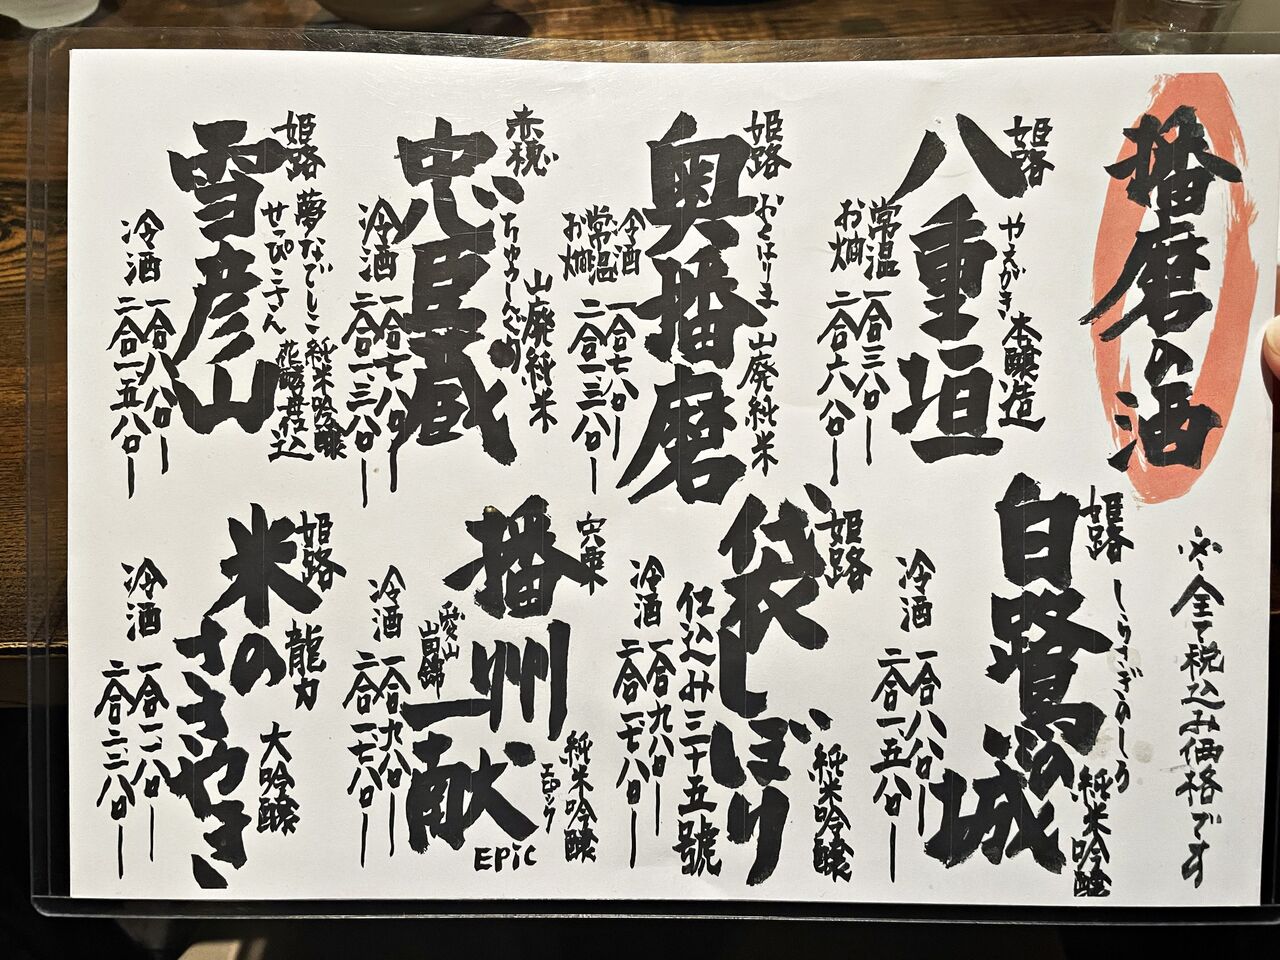 播磨の酒
※全て税込み価格です
姫路
八重垣
やえがき 本醸造
常温
お燗
一合 三八〇ー
二合 六八〇ー
姫路
白鷺の城
しらさぎのしろ
純米吟醸
冷酒
一合 八八〇ー
二合 一五八〇ー
姫路
奥播磨
おくはりま 山廃純米
冷酒
常温
お燗
一合 七八〇ー
二合 一三八〇ー
姫路
袋しぼり
純米吟醸
仕込み三十五號
冷酒
一合 九八〇ー
二合 一七八〇ー
赤穂
忠臣蔵
ちゅうしんぐら
山廃純米
冷酒
一合 七八〇ー
二合 一三八〇ー
宍粟
播州一献
純米吟醸
エピック
EPiC
愛山
山田錦
冷酒
一合 九八〇ー
二合 一七八〇ー
姫路
雪彦山
せっぴこさん
夢なでしこ 純米吟醸
花酵母仕込
冷酒
一合 八八〇ー
二合 一五八〇ー
姫路
米のささやき
龍力
大吟醸
冷酒
一合 一二八〇ー
二合 二二八〇ー